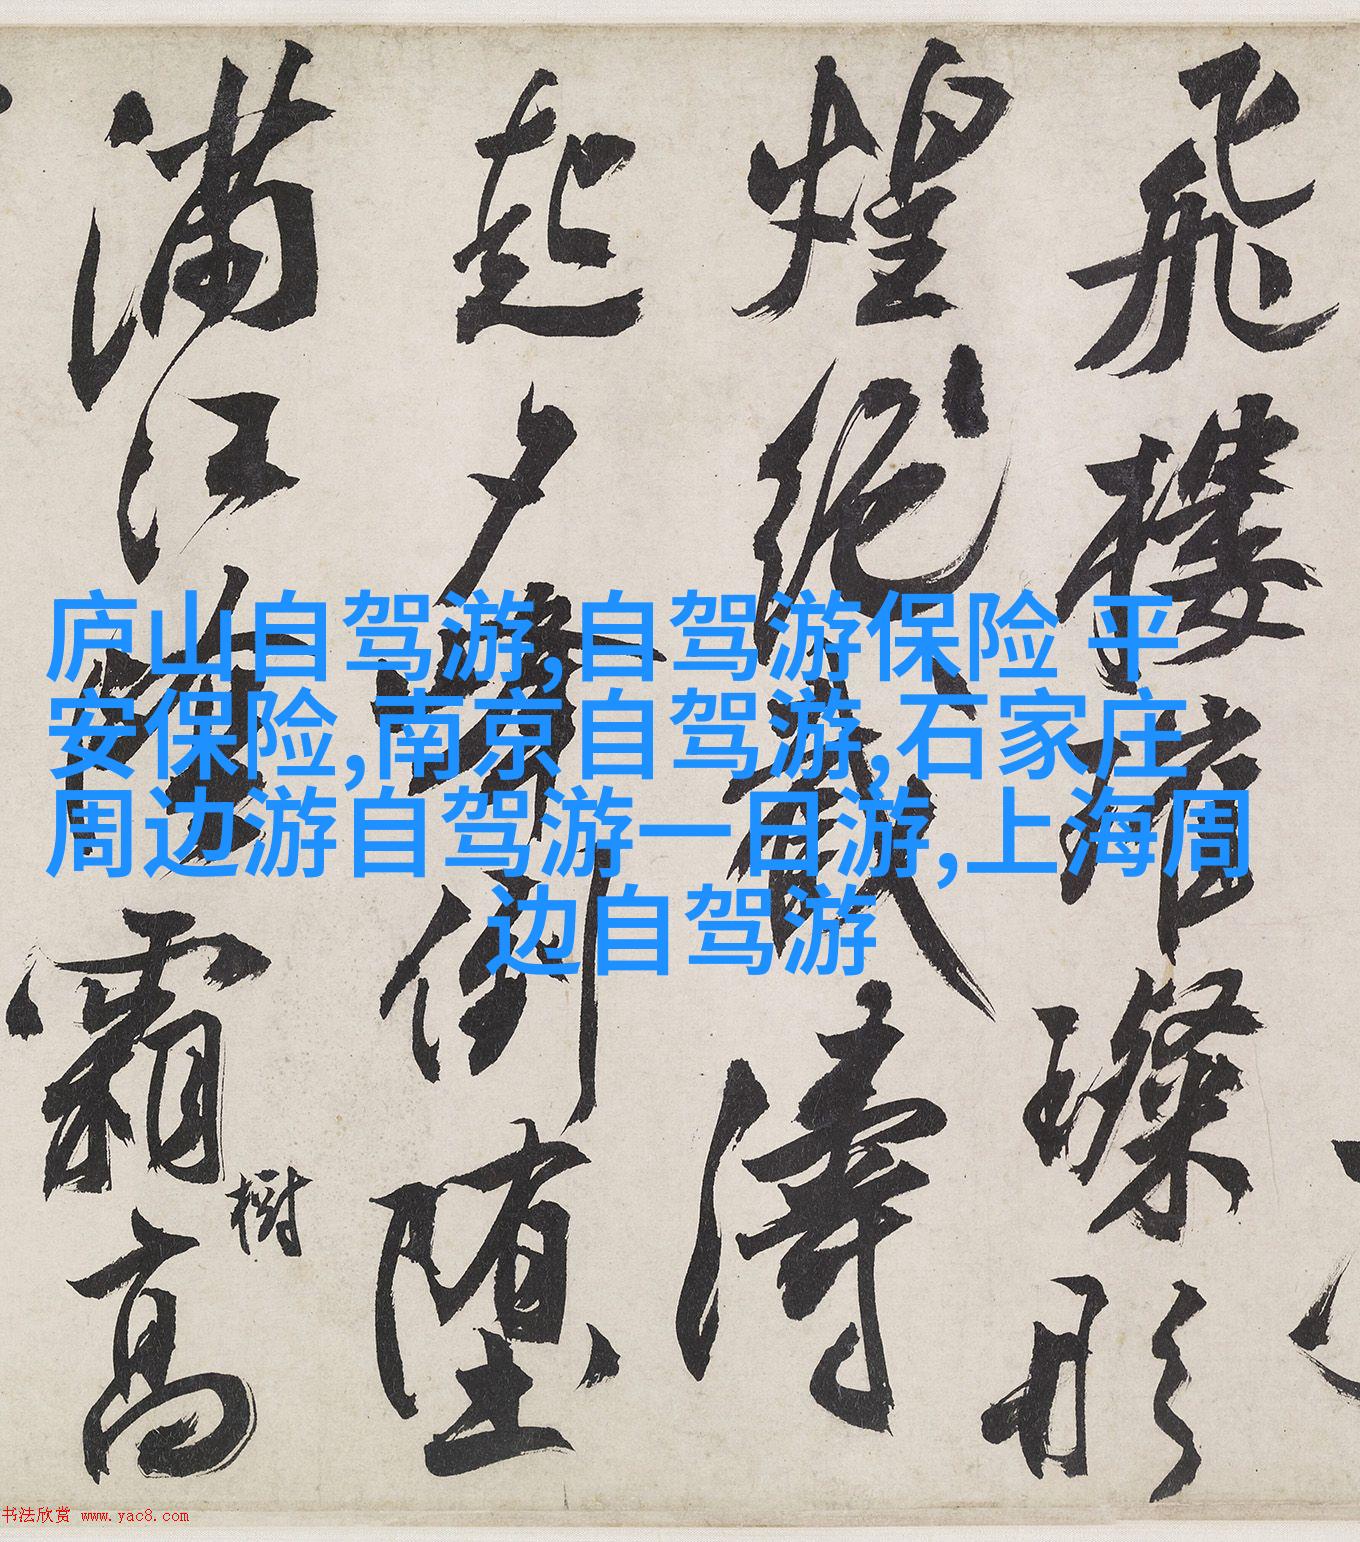 飛樓璨彤
煌絶濤
起夕倒堕
滿江霜高
樹
庐山自驾游,自驾游保险 平
安保险,南京自驾游,石家庄
周边游自驾游一日游,上海周
边自驾游
书法欣赏 www.yac8.com